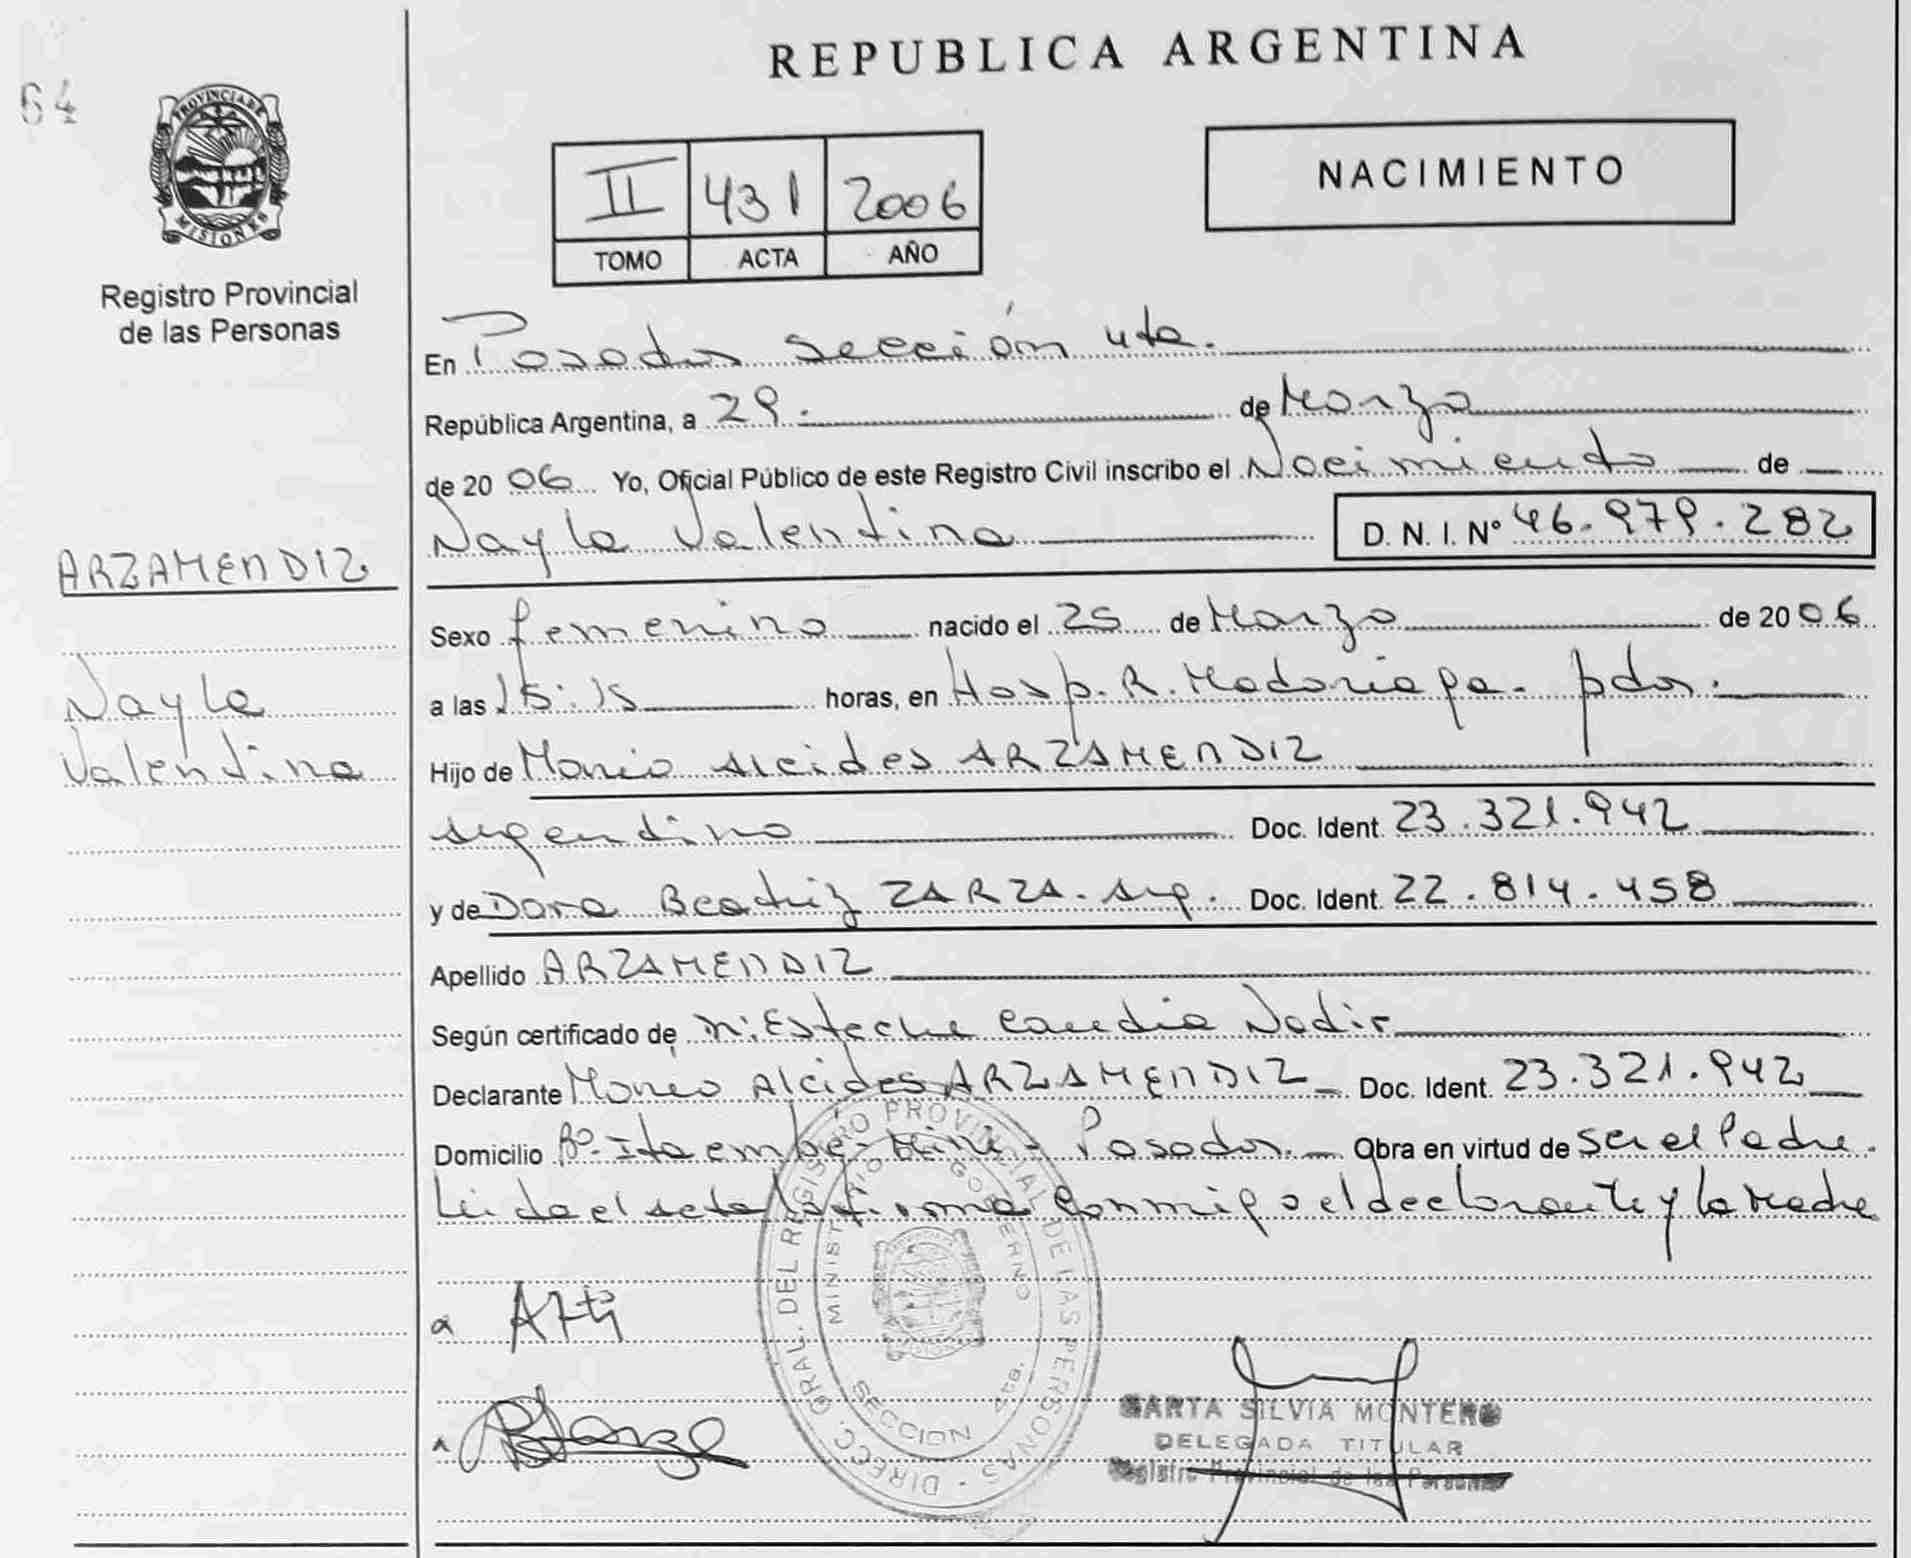 64
REPUBLICA ARGENTINA
PROVINCIA DE
MISIONES
Registro Provincial
de las Personas
II 431 2006
TOMO ACTA AÑO
NACIMIENTO
En Posadas sección 4ta.
República Argentina, a 29. de Marzo
de 2006 Yo, Oficial Público de este Registro Civil inscribo el Nacimiento de
Nayla Valentina D. N. I. N° 46.979.282
ARZAMENDIZ
Nayla
Valentina
Sexo femenino nacido el 25 de Marzo de 2006
a las 15:15 horas, en Hosp. R. Madariaga. pdas.
Hijo de Mario Alcides ARZAMENDIZ
argentino Doc. Ident. 23.321.942
y de Dora Beatriz ZARZA. arg. Doc. Ident. 22.814.458
Apellido ARZAMENDIZ
Según certificado de Esteche Claudia Nadir
Declarante Mario Alcides ARZAMENDIZ Doc. Ident. 23.321.942
Domicilio B° Itaembé Miní - Posadas. Obra en virtud de ser el Padre.
Leída el acta la firma conmigo el declarante y la Madre
DIRECC. GRAL. DEL REGISTRO PROVINCIAL DE LAS PERSONAS
MINISTERIO GOBIERNO
SECCION 4ta.
MARTA SILVIA MONTERO
DELEGADA TITULAR
Registro Provincial de las Personas